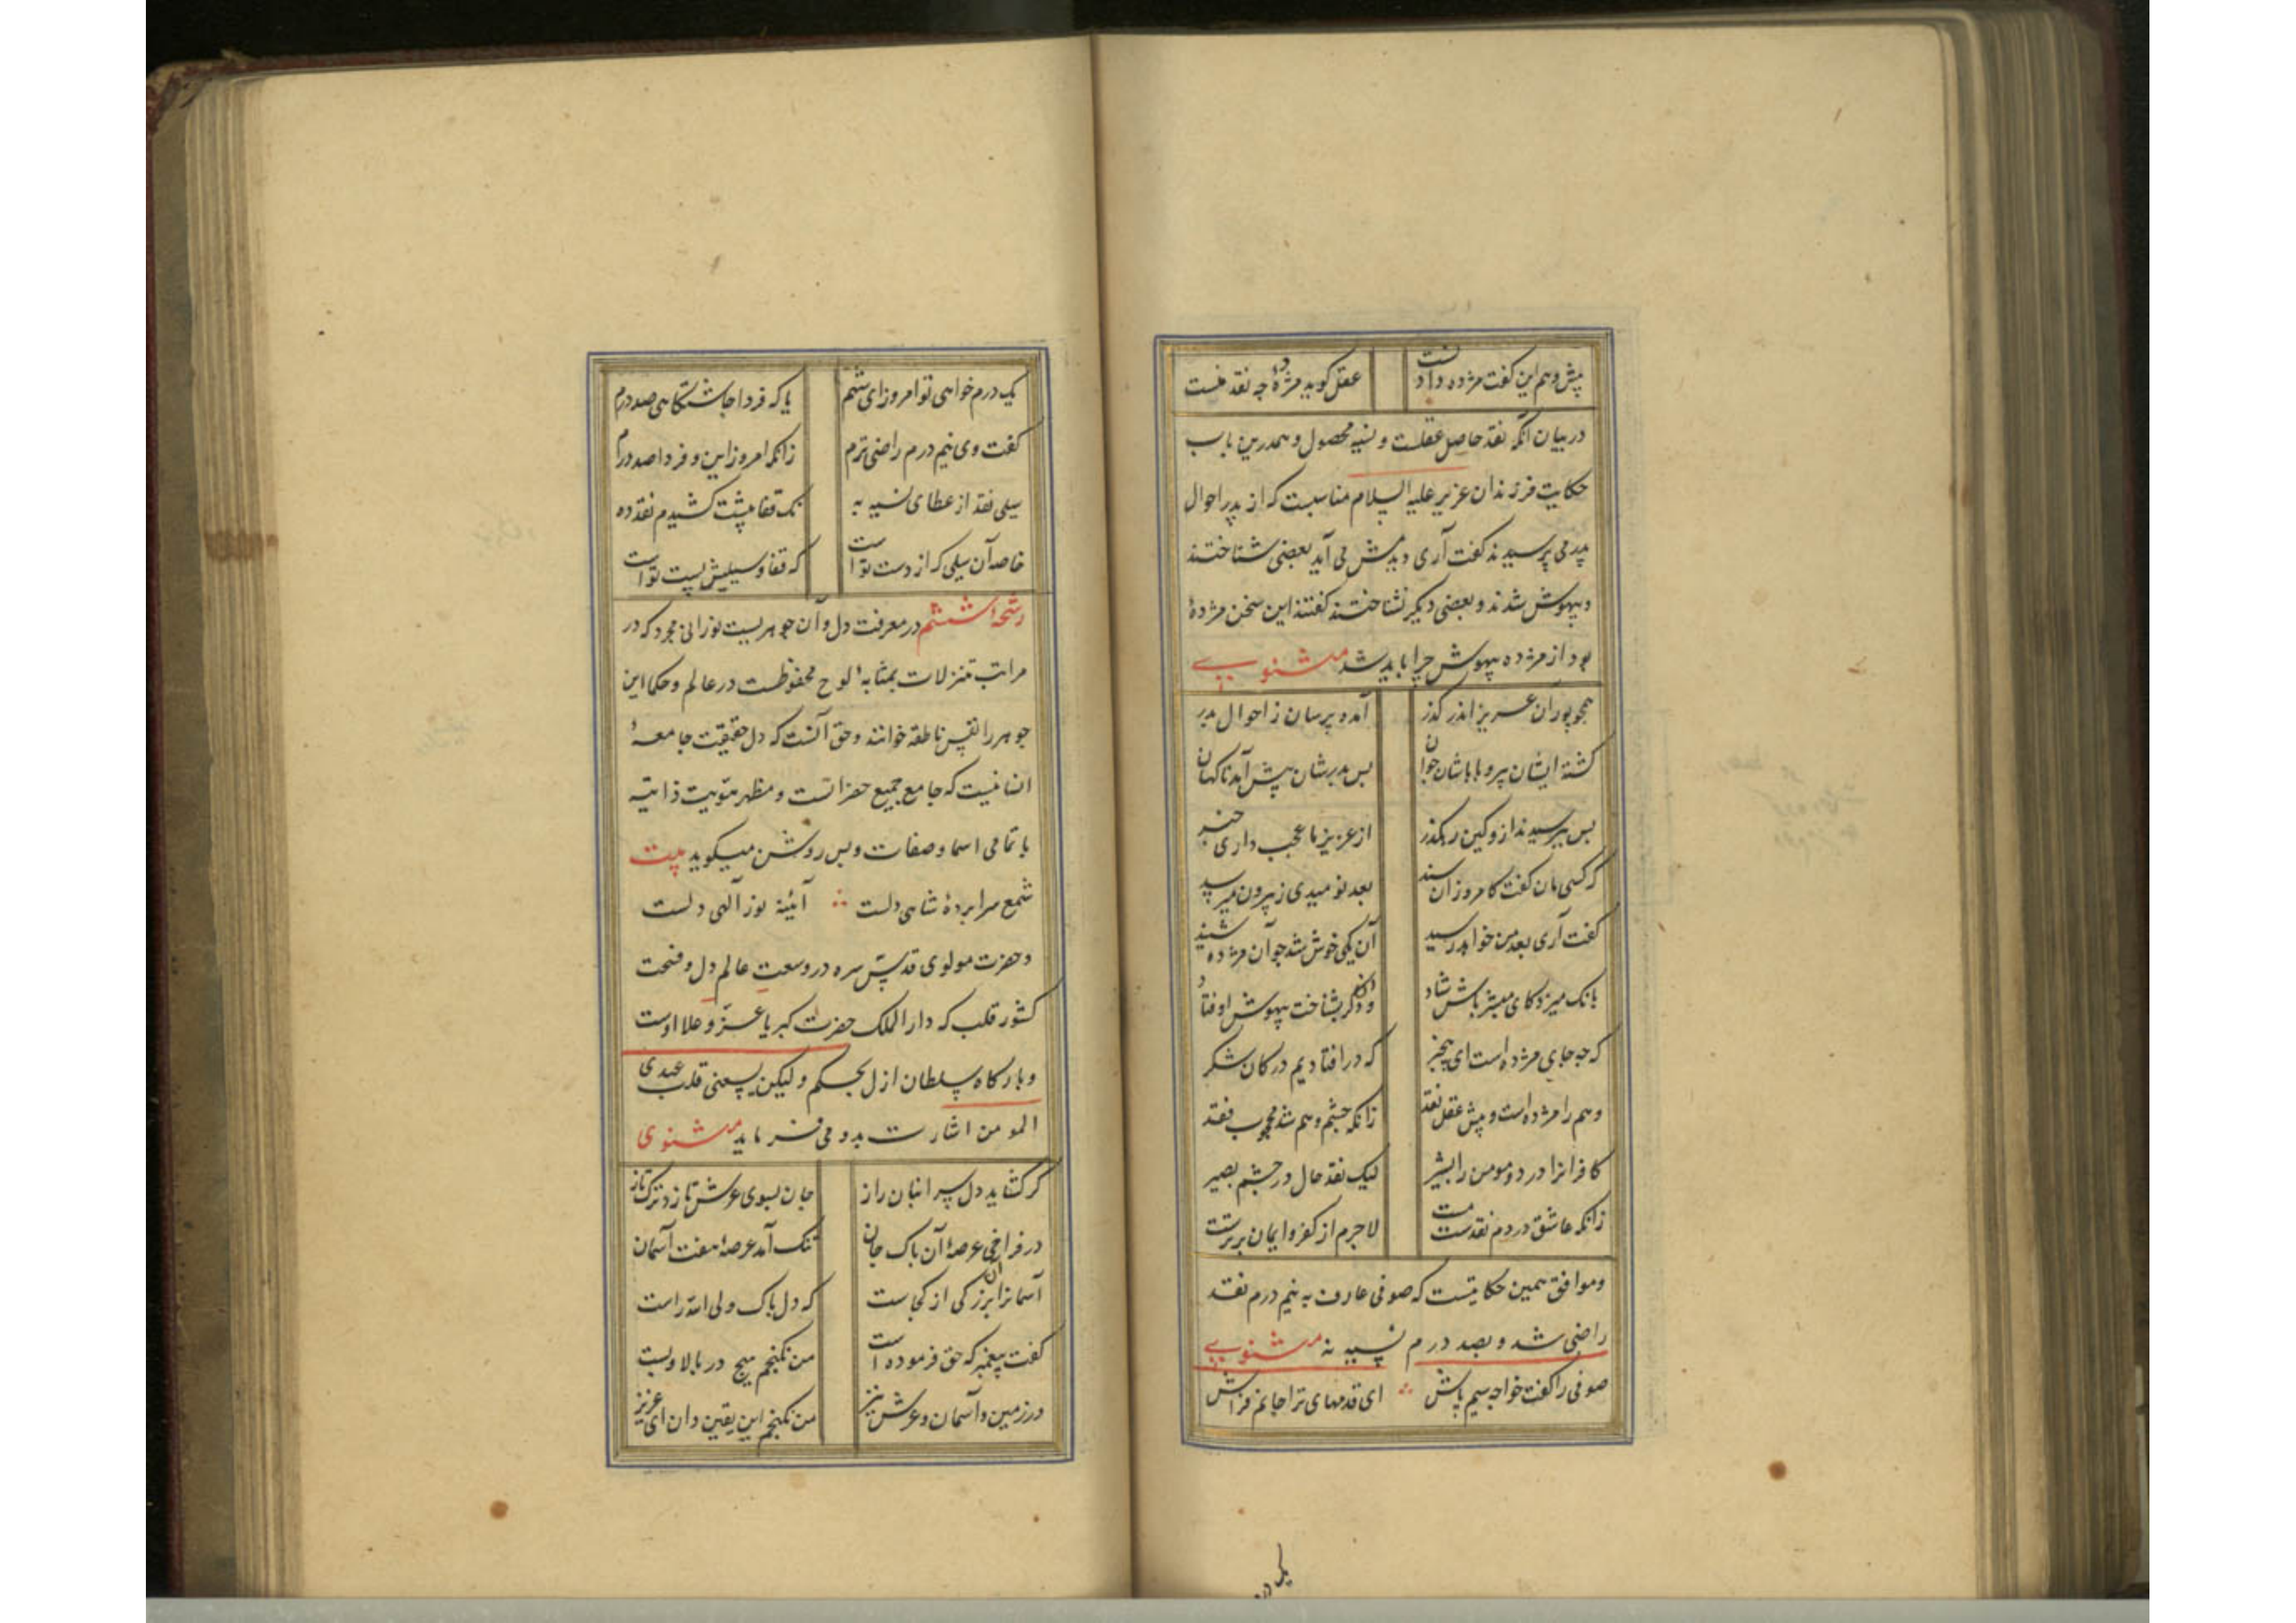 پیش وهم این گفت مژده دادنست عقل گوید مژدهٔ چه نقد منست
در بیان آنکه نقد حاصل عقلست و نسیه محصول و همدرین باب
حکایت فرزندان عزیر علیه السلام مناسبت که از پدر احوال
پدر می پرسیدند گفت آری دیدمش می آید بعضی شناختند
و بیهوش شدند و بعضی دیگر نشناختند گفتند این سخن مژدهٔ
بود از مژده بیهوش چرا باید شد مثنوی
همچو پوران عزیز اندر گذر آمده پرسان ز احوال پدر
گشته ایشان پیر و باباشان جوان پس پدرشان پیش آمد ناگهان
پس بپرسیدند ازو کین رهگذر از عزیز ما عجب داری خبر
که کسی مان گفت کامروز آن سند بعد نومیدی ز بیرون میرسد
گفت آری بعد من خواهد رسید آن یکی خوش شد چو آن مژده شنید
بانگ میزد کای مبشر باش شاد وان دگر بشناخت بیهوش اوفتاد
که چه جای مژده است ای بیخبر که در افتادیم در کان شکر
وهم را مژده است و پیش عقل نقد زانکه چشم وهم شد محجوب فقد
کافرانرا درد و مومن را بشیر لیک نقد حال در چشم بصیر
زانکه عاشق در دم نقدست مست لاجرم از کفر و ایمان برترست
و موافق همین حکایتست که صوفی عارف به نیم درم نقد
راضی شد و بصد درم نسیه نه مثنوی
صوفی را گفت خواجه سیم پاش ای قدمهای ترا جانم فراش
یک درم خواهی تو امروز ای شهم یا که فردا چاشتگاهی صد درم
گفت وی نیم درم راضی ترم زانکه امروز این و فردا صد درم
سیلی نقد از عطای نسیه به نک قفا پیشت کشیدم نقد ده
خاصه آن سیلی که از دست تو است که قفا و سیلیش پست تو است
رشحهٔ ششم در معرفت دل و آن جوهریست نورانی مجرد که در
مراتب تنزلات بمثابهٔ لوح محفوظست در عالم و حکما این
جوهر را نفس ناطقه خوانند و حق آنست که دل حقیقت جامعهٔ
انسانیست که جامع جمیع حضراتست و مظهر هویت ذاتیه
با تمامی اسما و صفات و بس روشن میگوید بیت
شمع سراپردهٔ شاهی دلست آئینه نور آلهی دلست
و حضرت مولوی قدس سره در وسعت عالم دل و فسحت
کشور قلب که دار الملک حضرت کبریا عز و علا اوست
و بارگاه سلطان ازل بحکم و لیکن یسعنی قلب عبدی
المومن اشارت بدو می فرماید مثنوی
گر گشاید دل سر انبان راز جان بسوی عرش تازد ترکتاز
در فراخی عرصهٔ آن پاک جان تنگ آمد عرصهٔ هفت آسمان
آسمانرا آن بزرگی از کجاست که دل پاک ولی الله راست
گفت پیغمبر که حق فرموده است من نگنجم هیچ در بالا و پست
در زمین و آسمان و عرش نیز من نگنجم این یقین دان ای عزیز